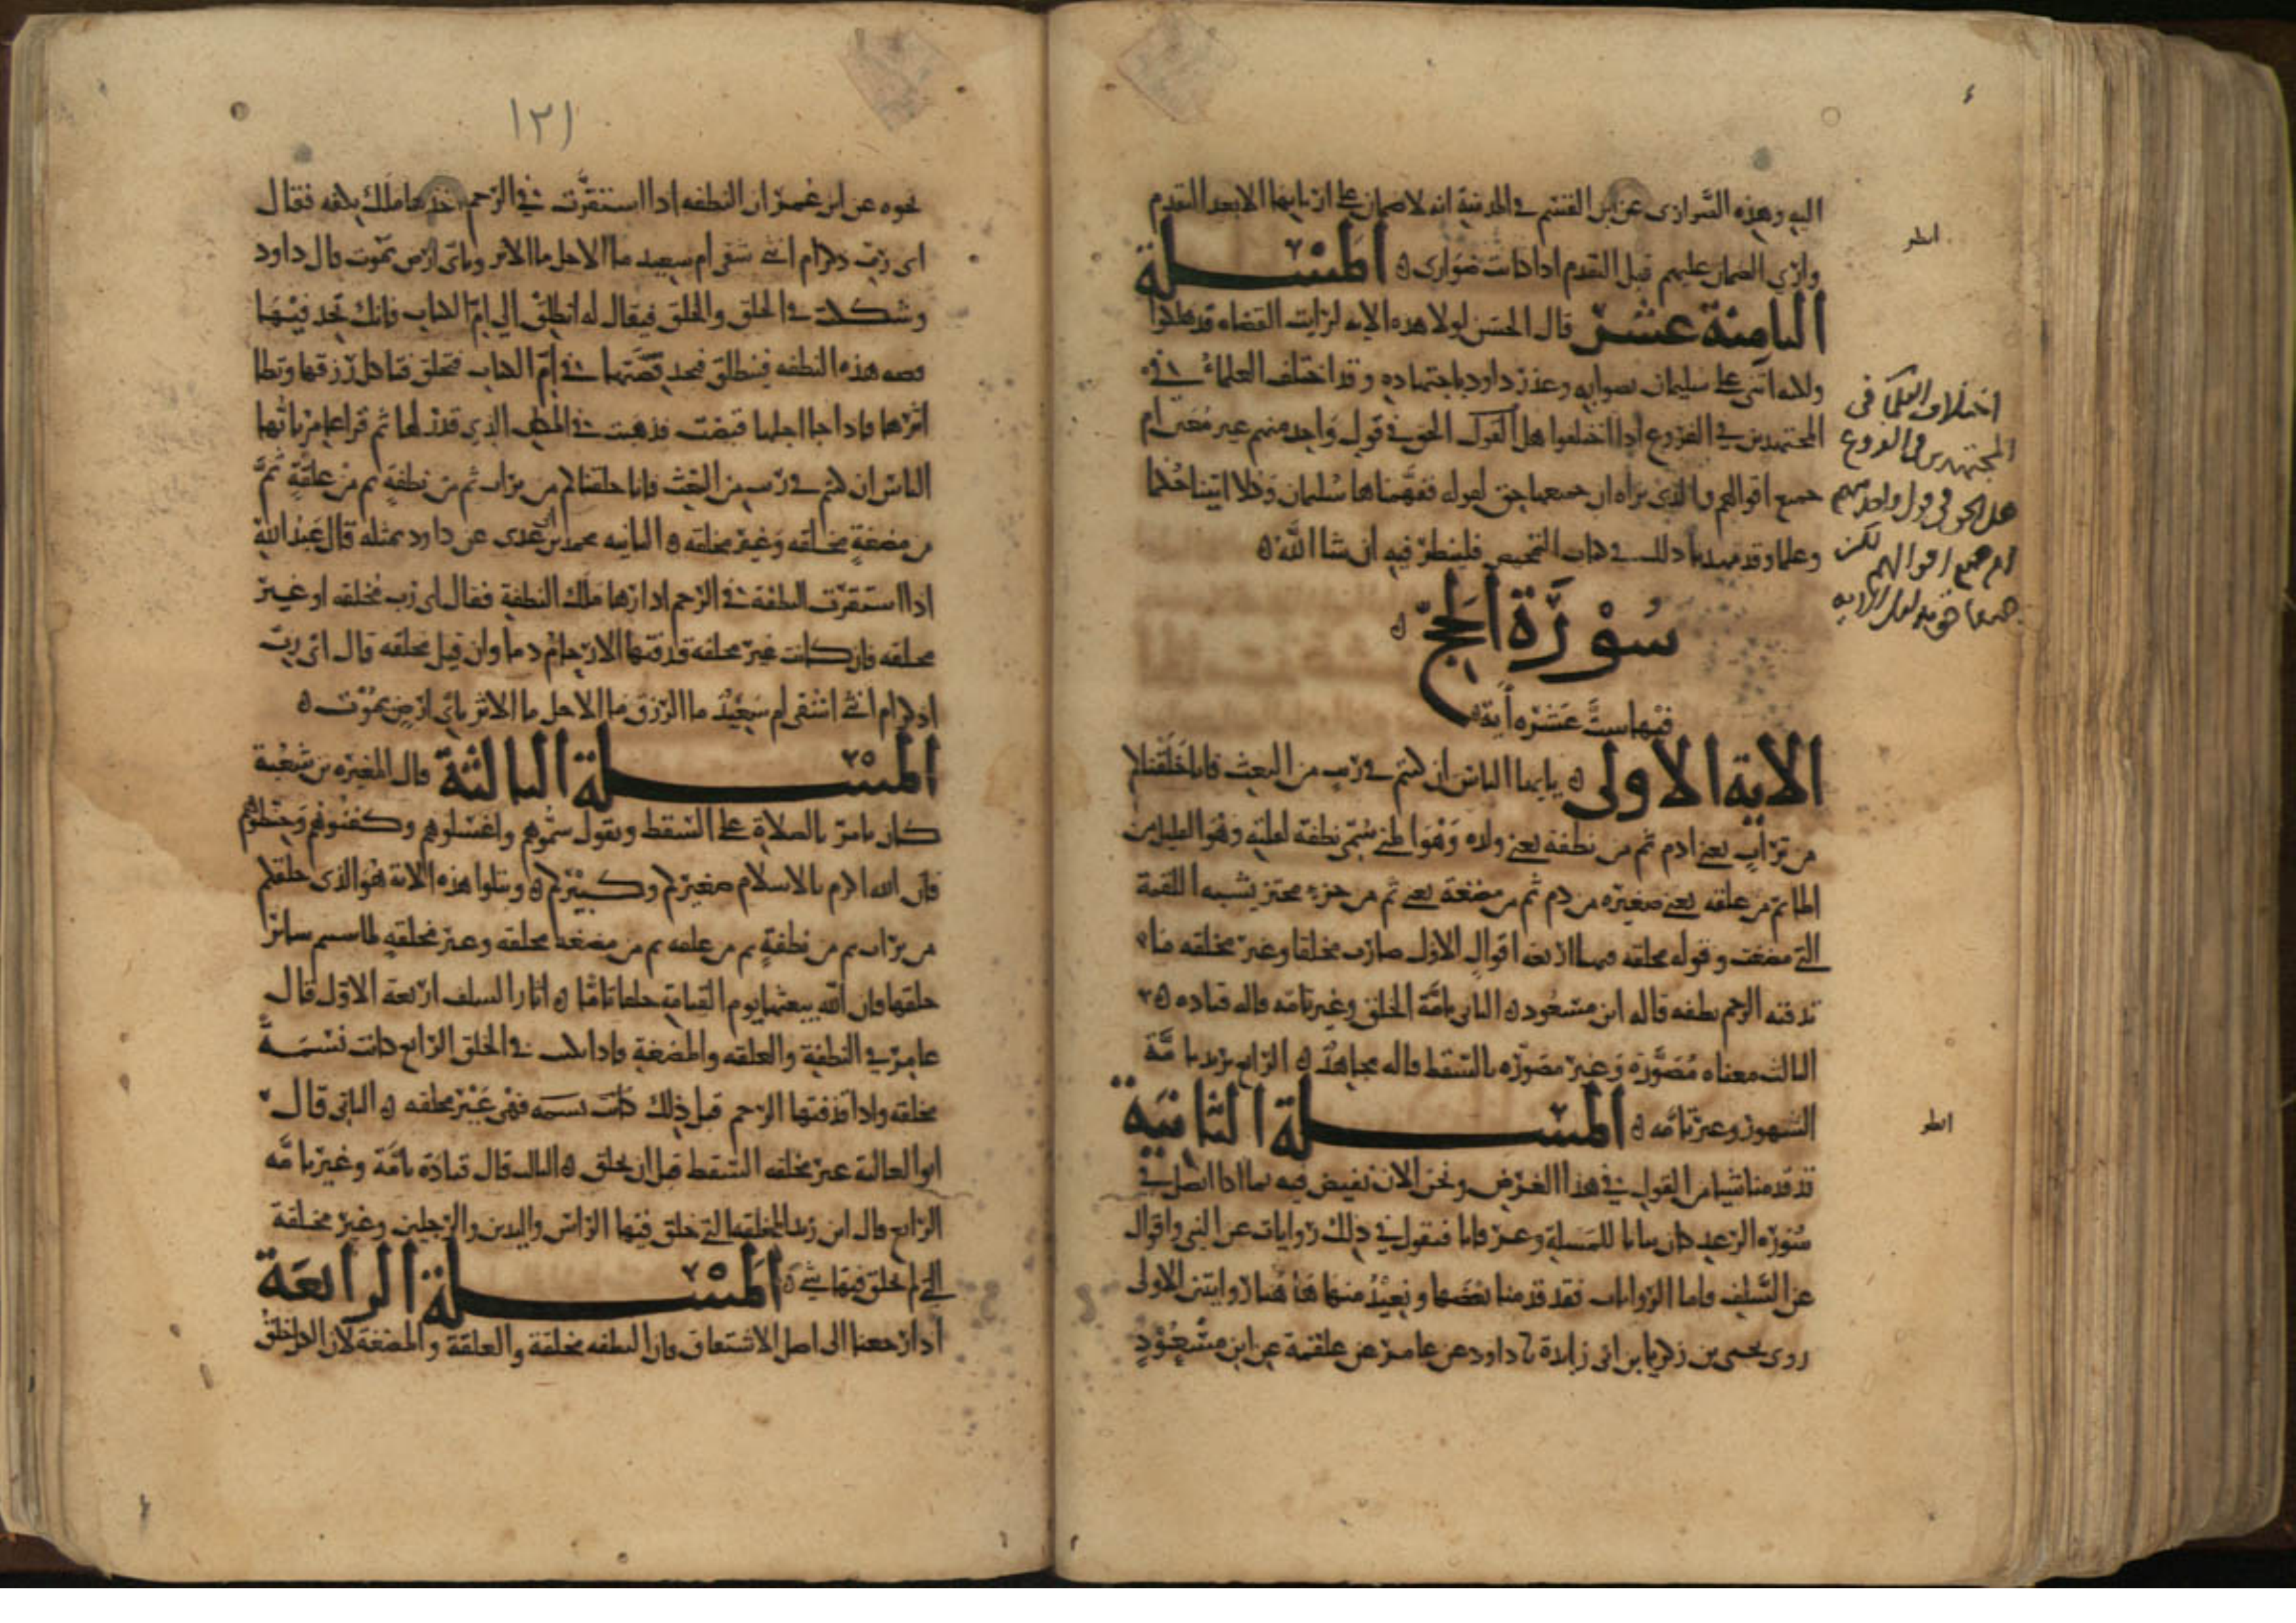 اليه وهذه الضواري عن ابن القسم في المدنية انه لا ضمان على اربابها الا بعد التقدم
وارى الضمان عليهم قبل التقدم اذا كانت ضواري ن المسلة
الثامنة عشر قال الحسن لولا هذه الايه لرايت القضاه قد هلكوا
ولكنه اثنى على سليمان بصوابه وعذر داود باجتهاده وقد اختلف العلماء في
المجتهدين في الفروع اذا اختلفوا هل القول الحق في قول واحد منهم غير معين ام
جميع اقوالهم والذي نراه ان جميعها حق لقوله ففهمناها سليمان وكلا اتينا حكما
وعلما وقد مهدنا ذلك في كتاب التمحيص فلينظر فيه ان شا الله ن
سورة الحج ن
فيها ست عشره اية
الاية الاولى ن يايها الناس ان كنتم في ريب من البعث فانا خلقناكم
من تراب يعني ادم ثم من نطفة يعني ولده وهو المني سمي نطفه لقلته وهو القليل من
الما ثم من علقه يعني صغيره من دم ثم من مضغة يعني ثم من جزء مختثر يشبه اللقمة
التي مضغت وقوله مخلقه فيها اربعه اقوال الاول صارت مخلقا وغير مخلقه ما
قذفته الرحم نطفه قاله ابن مسعود ن الثاني تامة الخلق وغير تامه قاله قتاده ن
الثالث معناه مصورة وغير مصوره كالسقط قاله مجاهد ن الرابع يريد تامة
الشهور وغير تامه ن المسلة الثانية
قد قدمنا شيا من القول في هذا الغرض ونحن الان نفيض فيه بما اذا اتصل في
سوره الرعد كان بيانا للمسلة وعرفانا فنقول في ذلك روايات عن النبي واقوال
عن السلف فاما الروايات فقد قدمنا بعضها ونعيد منها هاهنا روايتين الاولى
روى يحيى بن زكريا بن ابي زايدة ثنا داود عن عامر عن علقمة عن ابن مسعود
انظر
اختلاف العلما في
المجتهدين في الفروع
هل الحق في قول واحد منهم
ام جميع اقوالهم لكن
جميعا حق بدليل الايه
انظر
١٢١
نحوه عن ابن عمر ان النطفه اذا استقرت في الرحم اخذها ملك بكفه فقال
اي رب ذكر ام انثى شقي ام سعيد ما الاجل ما الاثر وباي ارض تموت قال داود
وشككت في الخلق والخلق فيقال له انطلق الي ام الكتاب فانك تجد فيها
قصه هذه النطفه فينطلق فيجد قصتها في ام الكتاب فتخلق فتاكل رزقها وتطا
اثرها فاذا جا اجلها قبضت فدفنت في المكان الذي قدر لها ثم قرا عامر يا ايها
الناس ان كنتم في ريب من البعث فانا خلقناكم من تراب ثم من نطفة ثم من علقة ثم
من مضغة مخلقه وغير مخلقه ن الثانيه محمد بن عدي عن داود بمثله قال عبد الله
اذا استقرت النطفة في الرحم ادارها ملك النطفة فقال اي رب مخلقه او غير
مخلقه فان كانت غير مخلقه قذفتها الارحام دما وان قيل مخلقه قال اي رب
اذكر ام انثى اشقي ام سعيد ما الرزق ما الاجل ما الاثر باي ارض يموت ن
المسلة الثالثة قال المغيره بن شعبة
كان يامر بالصلاة على السقط ويقول سموهم واغسلوهم وكفنوهم وحنطوهم
فان الله اكرم بالاسلام صغيركم وكبيركم ن ويتلوا هذه الاية هو الذي خلقكم
من تراب ثم من نطفة ثم من علقه ثم من مضغه مخلقه وغير مخلقه لما سيتم ساير
خلقها فان الله يبعثها يوم القيامة خلقا تاما ن اثار السلف اربعة الاول قال
عامر في النطفة والعلقه والمضغة فاذا نكست في الخلق الرابع كانت نسمة
مخلقه واذا قذفتها الرحم قبل ذلك كانت نسمه فهي غير مخلقه ن الثاني قال
ابو العالية غير مخلقه السقط قبل ان يخلق ن الثالث قال قتادة تامة وغير تامه
الرابع قال ابن زيد المخلقه التي خلق فيها الراس واليدين والرجلين وغير مخلقة
التي لم يخلق فيها شي ن المسلة الرابعة
اذا رجعنا الى اصل الاشتقاق فان النطفه مخلقة والعلقة والمضغة لان الكل خلق